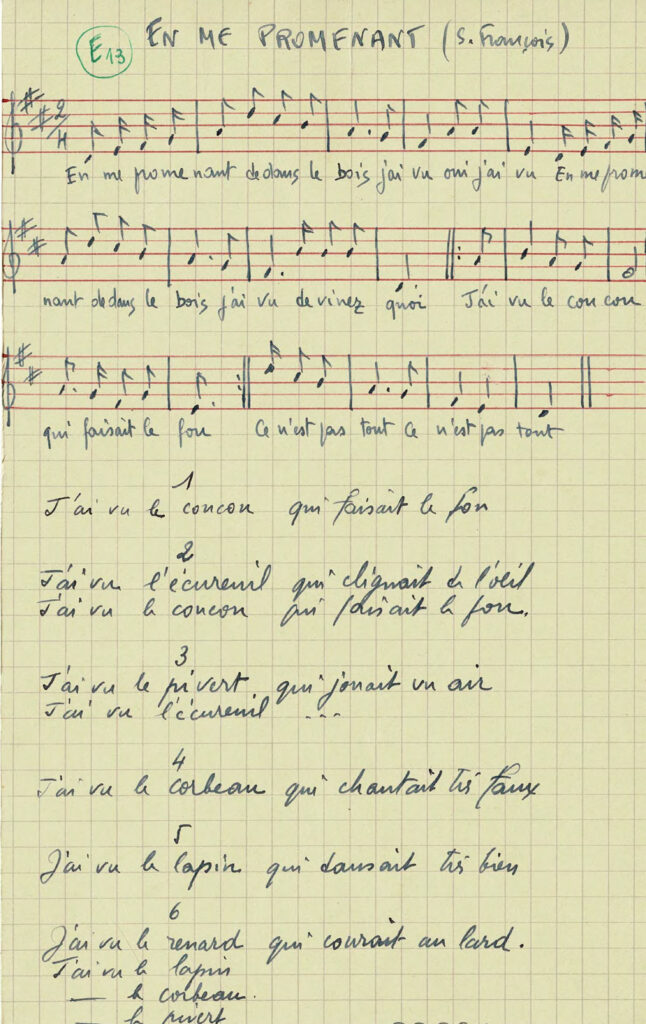 E13
EN ME PROMENANT (S. François)
2/4
En me prome nant dedans le bois j'ai vu oui j'ai vu En me prom
nant dedans le bois j'ai vu devinez quoi J'ai vu le coucou
qui faisait le fou Ce n'est pas tout Ce n'est pas tout
1
J'ai vu le coucou qui faisait le fou
2
J'ai vu l'écureuil qui clignait de l'œil
J'ai vu le coucou qui faisait le fou.
3
J'ai vu le pivert qui jouait un air
J'ai vu l'écureuil ...
4
J'ai vu le corbeau qui chantait très faux
5
J'ai vu le lapin qui dansait très bien
6
J'ai vu le renard qui courait au lard.
J'ai vu le lapin
— le corbeau.
— le pivert